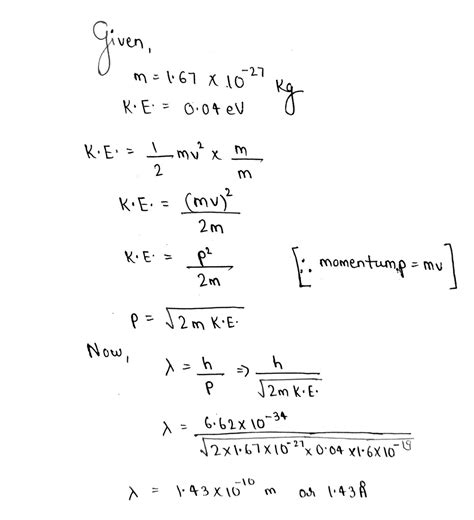 Given,
m = 1.67 × 10⁻²⁷ Kg
K.E. = 0.04 eV
K.E. = 1/2 mv² × m/m
K.E. = (mv)²/2m
K.E. = p²/2m [∵ momentum, p = mv]
p = √2m K.E.
Now,
λ = h/p ⇒ h/√2m K.E.
λ = 6.62×10⁻³⁴/√2×1.67×10⁻²⁷×0.04×1.6×10⁻¹⁹
λ = 1.43×10⁻¹⁰ m or 1.43Å